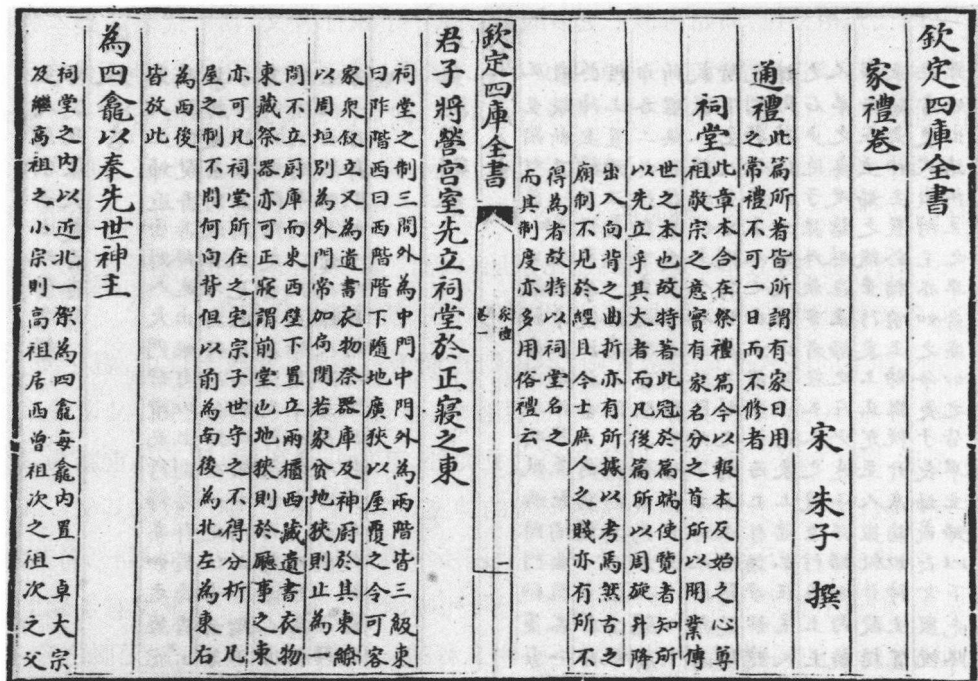 欽定四庫全書
家禮卷一
宋　朱子　撰
通禮此篇所著皆所謂有家日用
之常禮不可一日而不修者
祠堂此章本合在祭禮篇今以報本反始之心尊
祖敬宗之意實有家名分之首所以開業傳
世之本也故特著此冠於篇端使覽者知所
以先立乎其大者而凡後篇所以周旋升降
出入向背之曲折亦有所據以考焉然古之
廟制不見於經且今士庶人之賤亦有所不
得為者故特以祠堂名之
而其制度亦多用俗禮云
欽定四庫全書
家禮
卷一
一
君子將營宮室先立祠堂於正寢之東
祠堂之制三間外為中門中門外為兩階皆三級東
曰阼階西曰西階階下隨地廣狹以屋覆之令可容
家衆叙立又為遺書衣物祭器庫及神厨於其東繚
以周垣別為外門常加扃閉若家貧地狹則止為一
間不立厨庫而東西壁下置立兩櫃西藏遺書衣物
東藏祭器亦可正寢謂前堂也地狹則於廳事之東
亦可凡祠堂所在之宅宗子世守之不得分析凡
屋之制不問何向背但以前為南後為北左為東右
為西後
皆放此
為四龕以奉先世神主
祠堂之內以近北一架為四龕每龕內置一卓大宗
及繼高祖之小宗則高祖居西曾祖次之祖次之父